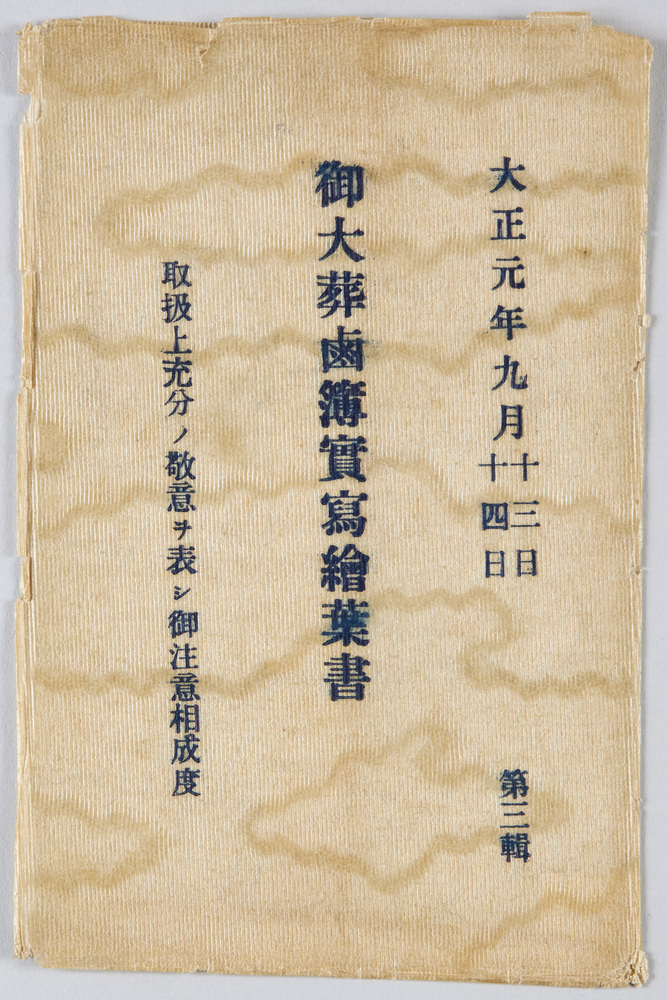 大正元年九月十三日
十四日
第三輯
御大葬鹵簿實寫繪葉書
取扱上充分ノ敬意ヲ表シ御注意相成度